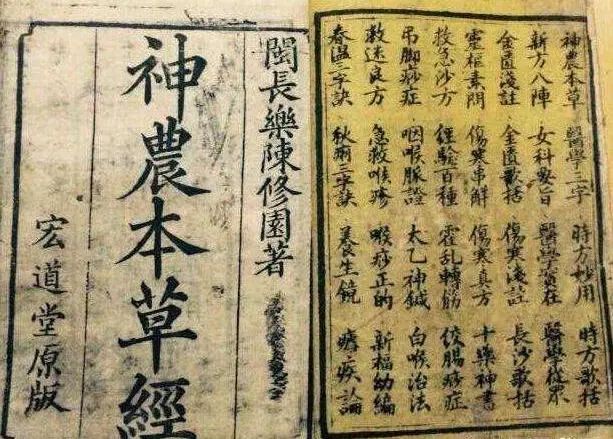 神農本草 醫學三字 時方妙用 時方歌括
新方八陣 女科要旨 醫學實在 醫學從眾
金匱淺註 金匱歌括 傷寒淺註 長沙歌括
靈樞素問 傷寒串解 傷寒真方 十藥神書
救急沙方 經驗百種 霍乱轉筋 絞腸痧症
吊脚痧症 咽喉脈證 太乙神鍼 白喉治法
救迷良方 急救喉疹 喉痧正的 新福幼編
春温三字訣 秋痢三字訣 養生鏡 瘧疾論
閩長樂陳修園著
神農本草經
宏道堂原版